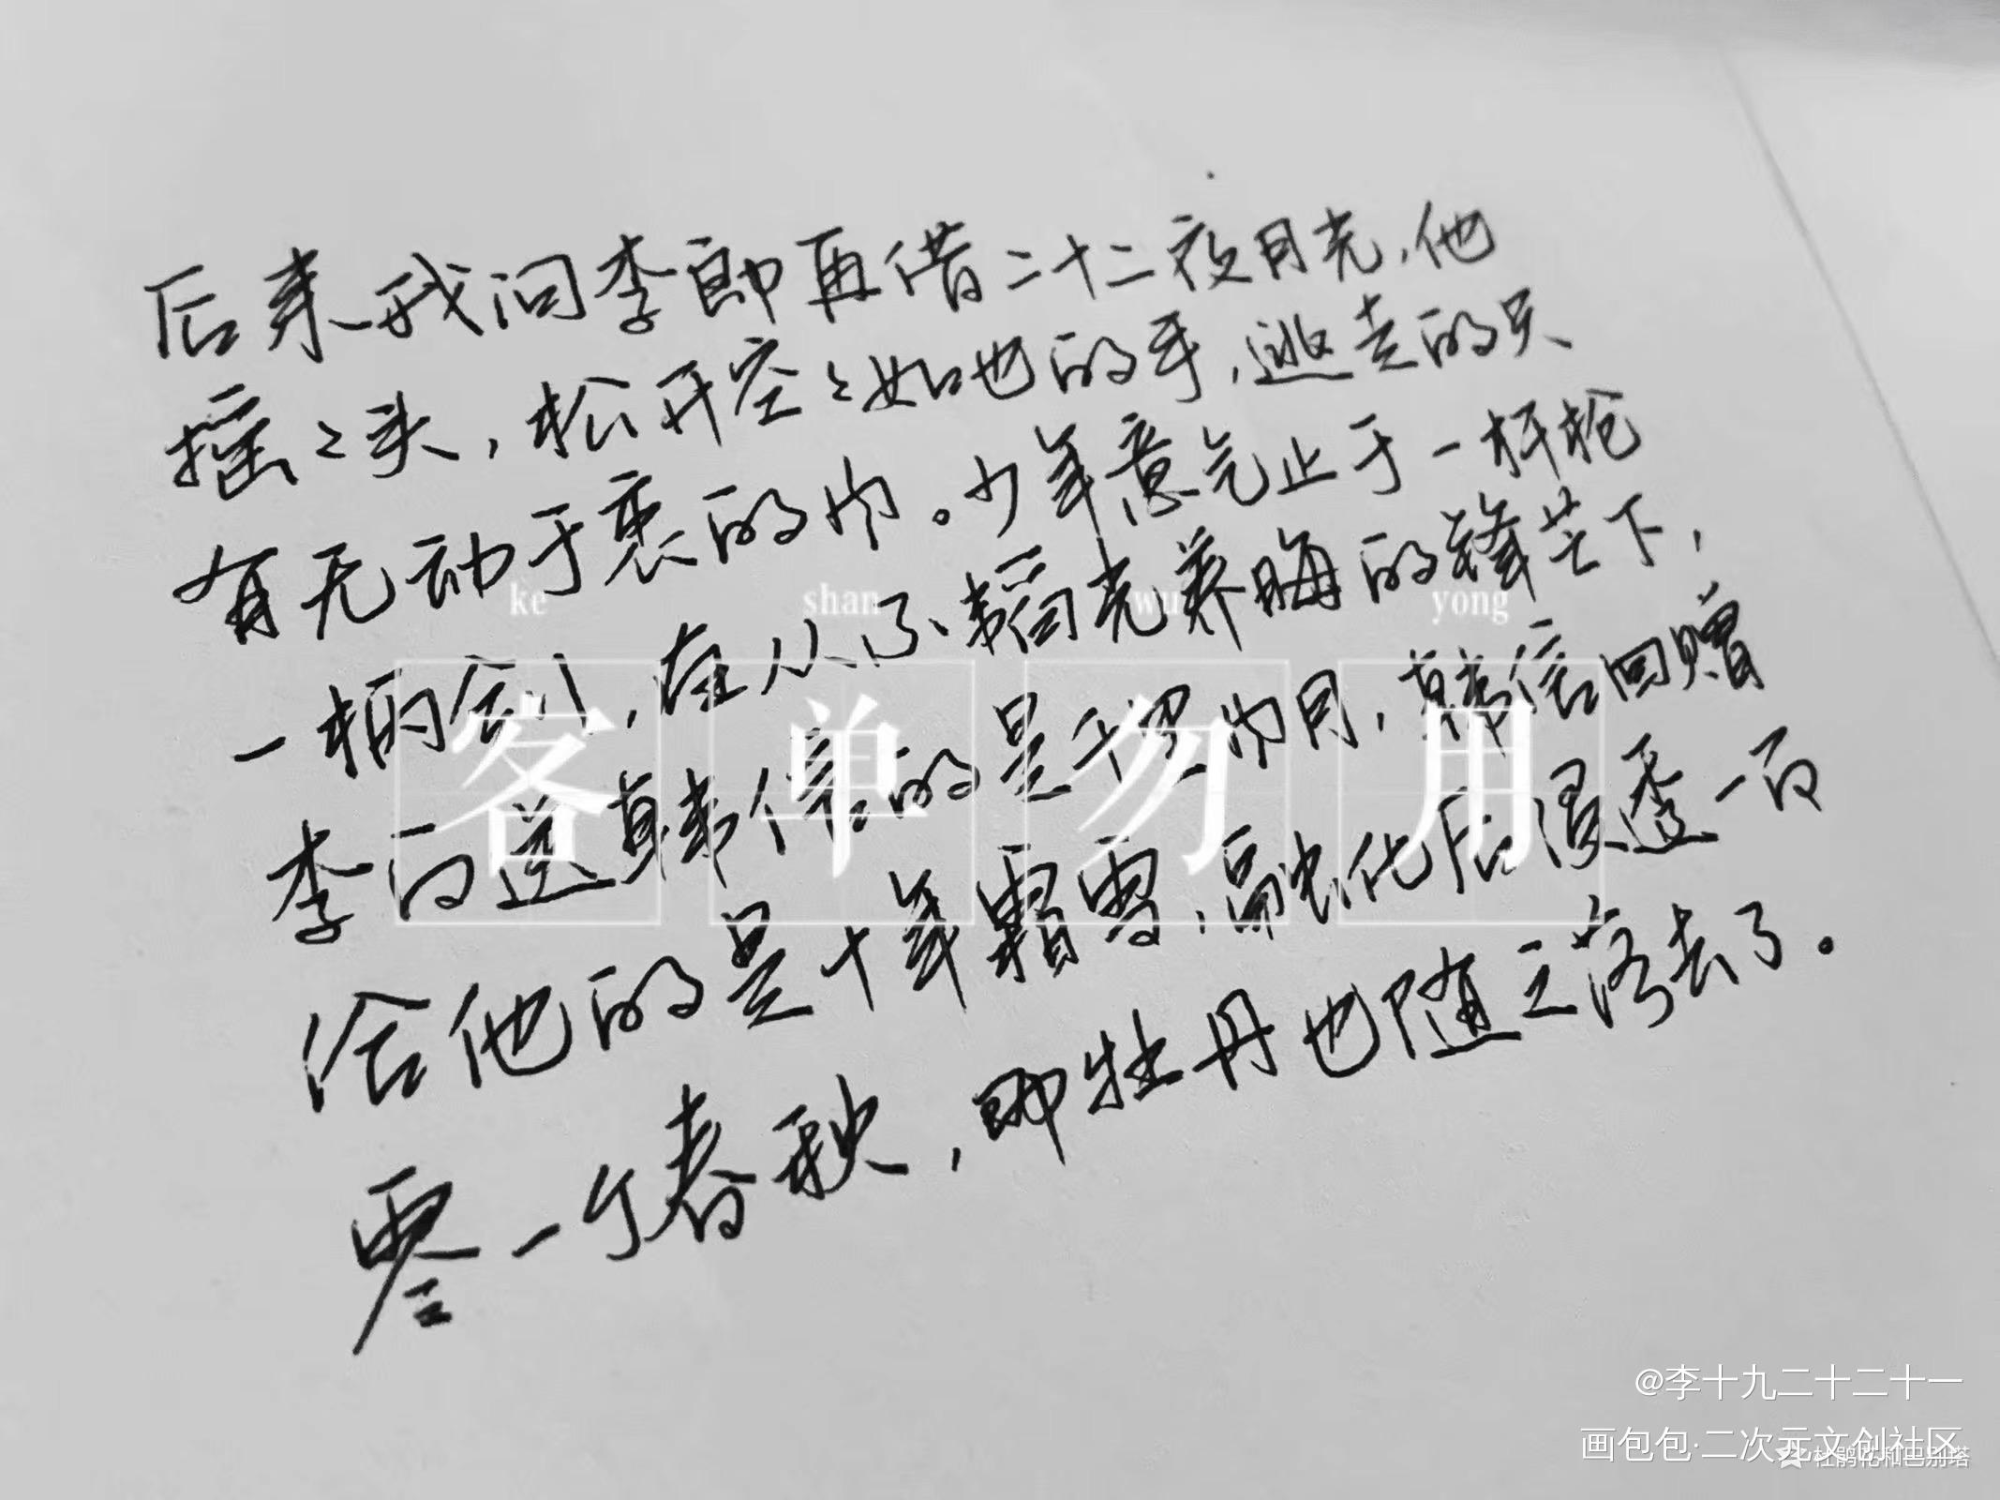 后来我问李郎再借二十二夜月光,他
摇摇头,松开空空如也的手,逃走的只
有无动于衷的风。少年意气止于一杆枪
一柄剑,在从不韬光养晦的锋芒下,
李白送韩信的是千里的月,韩信回赠
给他的是十年霜雪,融化后浸透一百
零一个春秋,即牡丹也随之落去了。
ke shan wu yong
客单勿用
@李十九二十二十一
画包包·二次元文创社区
杜鹃花和巴别塔